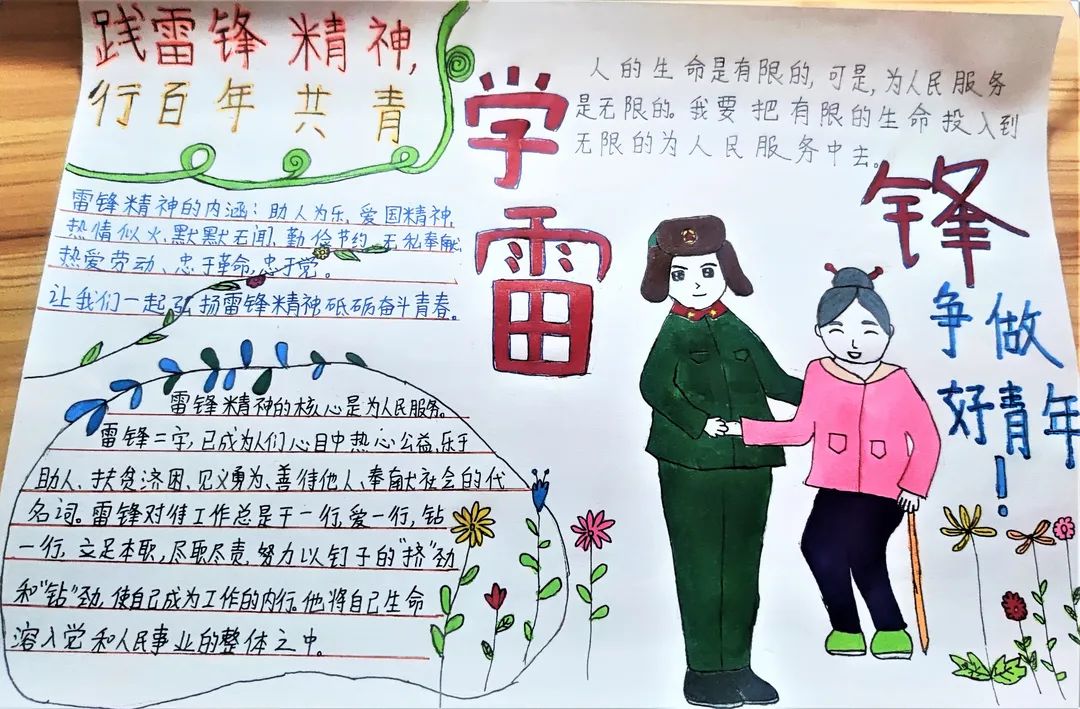 践雷锋精神,
行百年共青
学雷锋
人的生命是有限的,可是,为人民服务
是无限的。我要把有限的生命投入到
无限的为人民服务中去。
争做
好青年!
雷锋精神的内涵:助人为乐、爱国精神,
热情似火、默默无闻、勤俭节约、无私奉献、
热爱劳动、忠于革命,忠于党。
让我们一起弘扬雷锋精神砥砺奋斗青春。
雷锋精神的核心是为人民服务。
雷锋二字,已成为人们心目中热心公益、乐于
助人、扶贫济困、见义勇为、善待他人、奉献社会的代
名词。雷锋对待工作总是干一行,爱一行,钻
一行,立足本职,尽职尽责,努力以钉子的“挤”劲
和“钻”劲,使自己成为工作的内行。他将自己生命
溶入党和人民事业的整体之中。